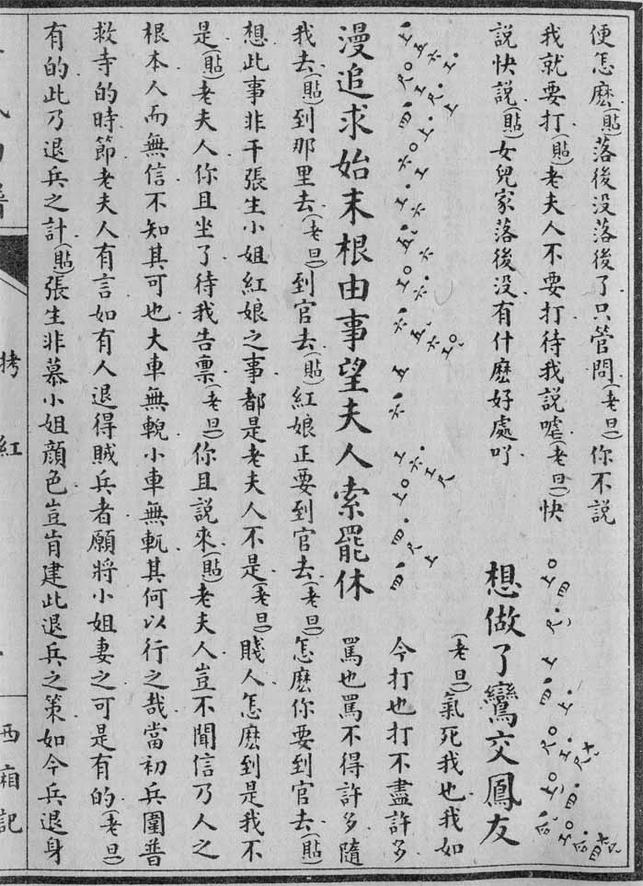 便怎麽(貼)落後没落後了只管問(老旦)你不說
我就要打(貼)老夫人不要打待我說嘘(老旦)快
說快說(貼)女兒家落後没有什麽好處吖
想做了鸞交鳳友
漫追求始末根由事望夫人索罷休
(老旦)氣死我也我如
今打也打不盡許多
罵也罵不得許多隨
我去(貼)到那里去(老旦)到官去(貼)紅娘正要到官去(老旦)怎麽你要到官去(貼)
想此事非干張生小姐紅娘之事都是老夫人不是(老旦)賤人怎麽到是我不
是(貼)老夫人你且坐了待我告禀(老旦)你且說來(貼)老夫人豈不聞信乃人之
根本人而無信不知其可也大車無輗小車無軏其何以行之哉當初兵圍普
救寺的時節老夫人有言如有人退得賊兵者願將小姐妻之可是有的(老旦)
有的此乃退兵之計(貼)張生非慕小姐顔色豈肯建此退兵之策如今兵退身
拷紅
西廂記